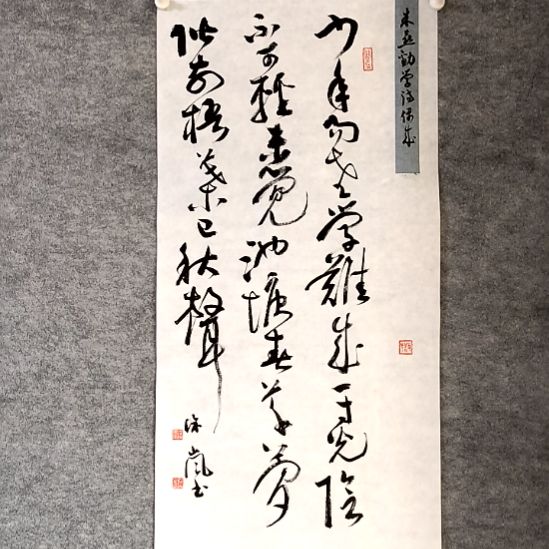 朱熹勸学诗偶成
少年易老學難成一寸光陰
不可輕未觉池塘春草夢
階前梧葉已秋聲
嵐书